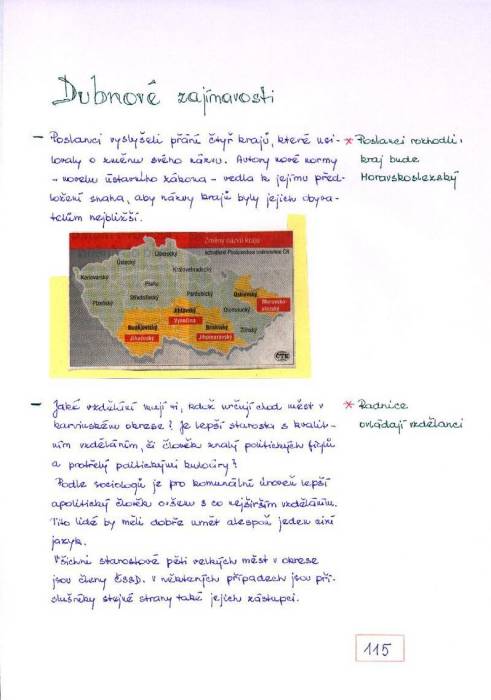 Dubnové zajímavosti
- Poslanci vyslyšeli přání čtyř krajů, které usi-
lovaly o změnu svého názvu. Autory nové normy
- novelu ústavního zákona - vedla k jejímu před-
ložení snaha, aby názvy krajů byly jejich obyva-
telům nejbližší.
* Poslanci rozhodli:
kraj bude
Moravskoslezský
Změny názvů krajů
schválené Poslaneckou sněmovnou ČR
Liberecký
Ústecký
Karlovarský
Královéhradecký
Praha
Plzeňský
Středočeský
Pardubický
Ostravský
Moravsko-
slezský
Olomoucký
Jihlavský
Vysočina
Budějovický
Jihočeský
Brněnský
Jihomoravský
Zlínský
ČTK
- Jaké vzdělání mají ti, kdož určují chod měst v
karvinském okrese? Je lepší starosta s kvalit-
ním vzděláním, či člověk znalý politických fíglů
a protřelý politickými kuloáry?
Podle sociologů je pro komunální úroveň lepší
apolitický člověk ovšem s co nejširším vzděláním.
Tito lidé by měli dobře umět alespoň jeden cizí
jazyk.
Všichni starostové pěti velkých měst v okrese
jsou členy ČSSD. V některých případech jsou pří-
slušníky stejné strany také jejich zástupci.
* Radnice
ovládají vzdělanci
115